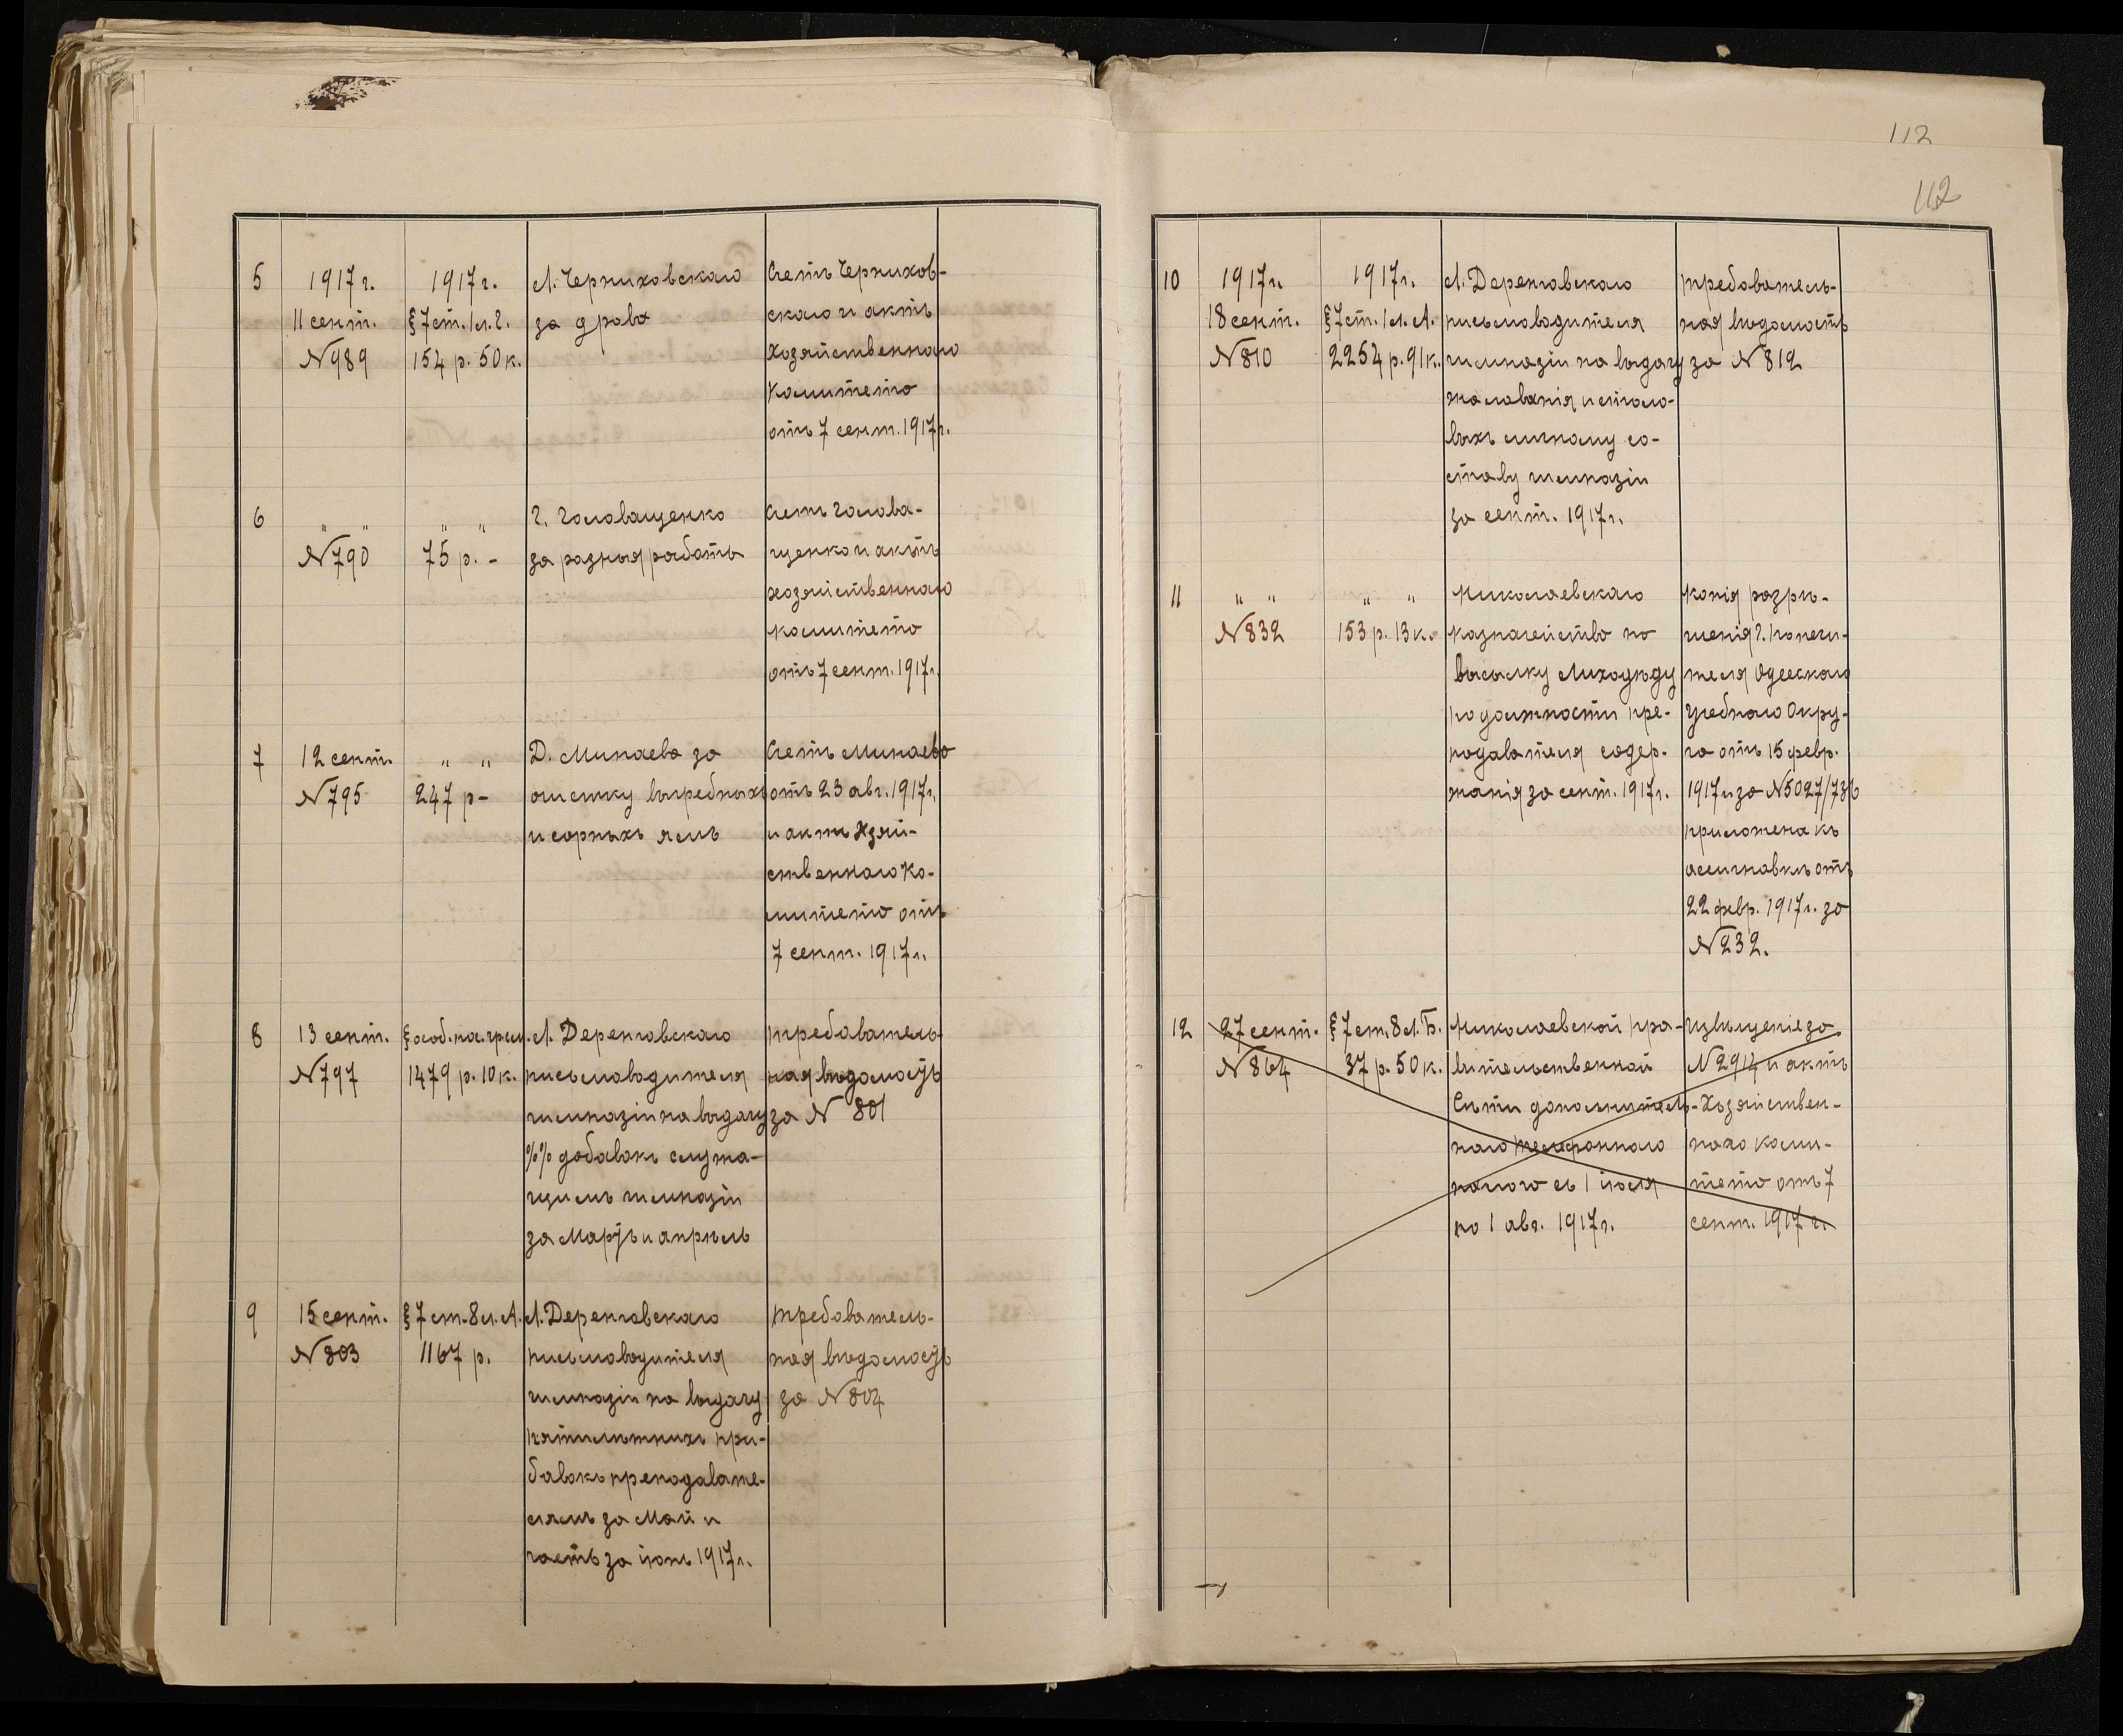 112
112
5
1917 г.
11 сент.
№989
1917 г.
§7 ст. 1 л. г.
154 р. 50 к.
Л. Черниховскаго
за дрова
Счетъ Чернихов-
скаго и актъ
Хозяйственнаго
Комитета
отъ 7 сент. 1917 г.
6
" "
№790
" "
75 р. -
г. Головащенко
за разныя работы
Счетъ Голова-
щенко и актъ
хозяйственнаго
комитета
отъ 7 сент. 1917 г.
7
12 сент.
№795
" "
247 р -
Д. Минаева за
очистку выгребныхъ
и сорныхъ ямъ
Счетъ Минаева
отъ 23 авг. 1917 г.
и актъ Хозяй-
ственнаго Ко-
митета отъ
7 сент. 1917 г.
8
13 сент.
№797
1479 р. 10 к.
Л. Деренговскаго
письмоводителя
гимназіи на выдачу
%% добавокъ служа-
щимъ гимназіи
за Мартъ и апрѣль
требователь-
ная вѣдомость
за № 801
9
15 сент.
№803
§7 ст. 8 л. А.
1167 р.
Л. Деренговскаго
письмоводителя
гимназіи на выдачу
пятилѣтнихъ при-
бавокъ преподавате-
лямъ за Май и
часть за іюнь 1917 г.
требователь-
ная вѣдомость
за №804
10
1917 г.
18 сент.
№810
1917 г.
§7 ст. 1 л. А.
2254 р. 91 к.
Л. Деренговскаго
письмоводителя
гимназіи на выдачу
жалованія и столо-
выхъ личному со-
ставу гимназіи
за сент. 1917 г.
требователь-
ная вѣдомость
за №812
11
" "
№832
" "
153 р. 13 к.
Николаевскаго
казначейства на
высылку
по должности пре-
подавателя содер-
жанія за сент. 1917 г.
копія разрѣ-
шенія г. Попечи-
теля Одесскаго
Учебнаго Окру-
га отъ 15 февр.
1917 г. за №5027/736
приложена къ
ассигновкѣ отъ
22 февр. 1917 г. за
№232.
12
27 сент.
№864
§7 ст. 8 л. Б.
37 р. 50 к.
Николаевской пра-
вительственной
Сѣти дополнитель-
наго телефоннаго
налога съ 1 іюля
по 1 авг. 1917 г.
извѣщеніе за
№2914 и актъ
Хозяйствен-
наго коми-
тета отъ 7
сент. 1917 г.